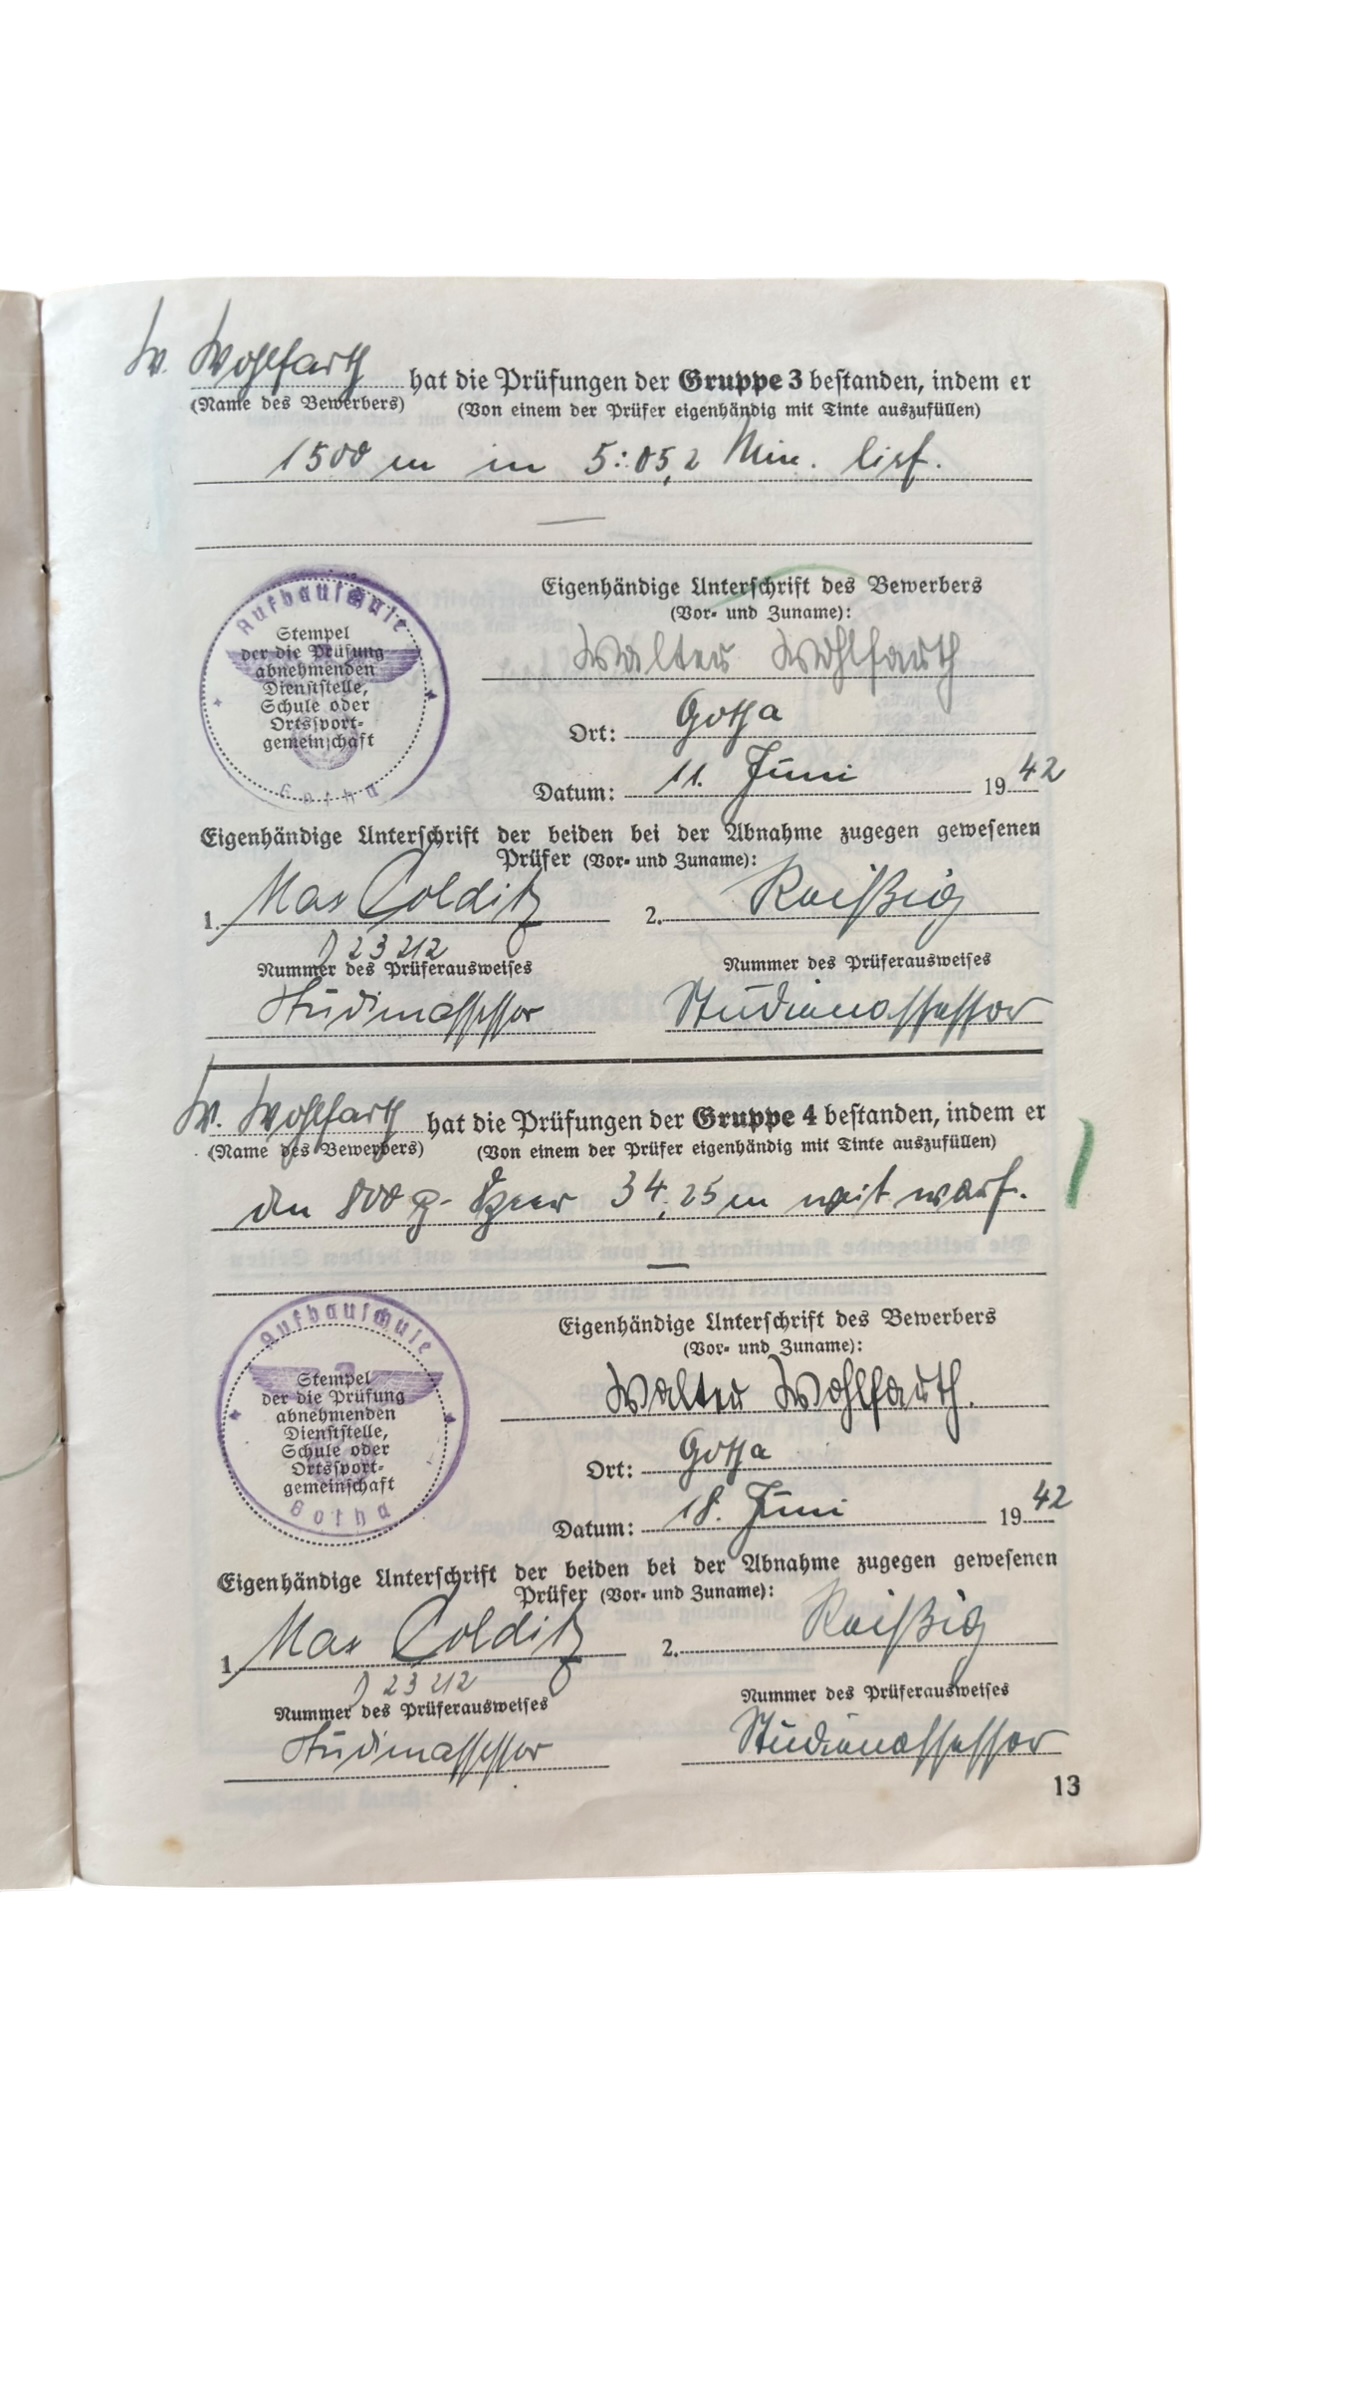 W. Wohlfarth hat die Prüfungen der Gruppe 3 bestanden, indem er
(Name des Bewerbers) (Von einem der Prüfer eigenhändig mit Tinte auszufüllen)
1500 m in 5:05,2 Min. lief.
—
Aufbauschule
Stempel
der die Prüfung
abnehmenden
Dienststelle,
Schule oder
Ortssport-
gemeinschaft
Gotha
Eigenhändige Unterschrift des Bewerbers
(Vor- und Zuname):
Walter Wohlfarth
Ort: Gotha
Datum: 11. Juni 1942
Eigenhändige Unterschrift der beiden bei der Abnahme zugegen gewesenen
Prüfer (Vor- und Zuname):
1. Max Colditz 2. Reißig
23212
Nummer des Prüferausweises Nummer des Prüferausweises
Studienassessor Studienassessor
W. Wohlfarth hat die Prüfungen der Gruppe 4 bestanden, indem er
(Name des Bewerbers) (Von einem der Prüfer eigenhändig mit Tinte auszufüllen)
den 800 g- Speer 34,25 m weit warf.
—
Aufbauschule
Stempel
der die Prüfung
abnehmenden
Dienststelle,
Schule oder
Ortssport-
gemeinschaft
Gotha
Eigenhändige Unterschrift des Bewerbers
(Vor- und Zuname):
Walter Wohlfarth.
Ort: Gotha
Datum: 18. Juni 1942
Eigenhändige Unterschrift der beiden bei der Abnahme zugegen gewesenen
Prüfer (Vor- und Zuname):
1. Max Colditz 2. Reißig
23212
Nummer des Prüferausweises Nummer des Prüferausweises
Studienassessor Studienassessor
13